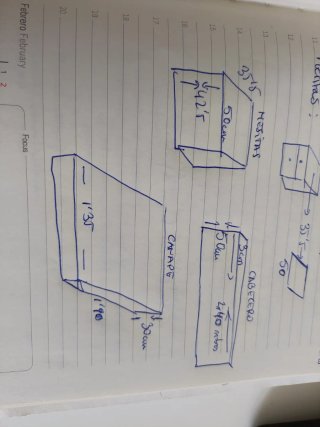 35'5
50
CABECERO
3cm
50cm
2'40 metros
MESITAS
35'5
50cm
42'5
CANAPÉ
30cm
1'35
1'90
11
12
13
14
15
16
17
18
19
20
Febrero February
1 2
Focus